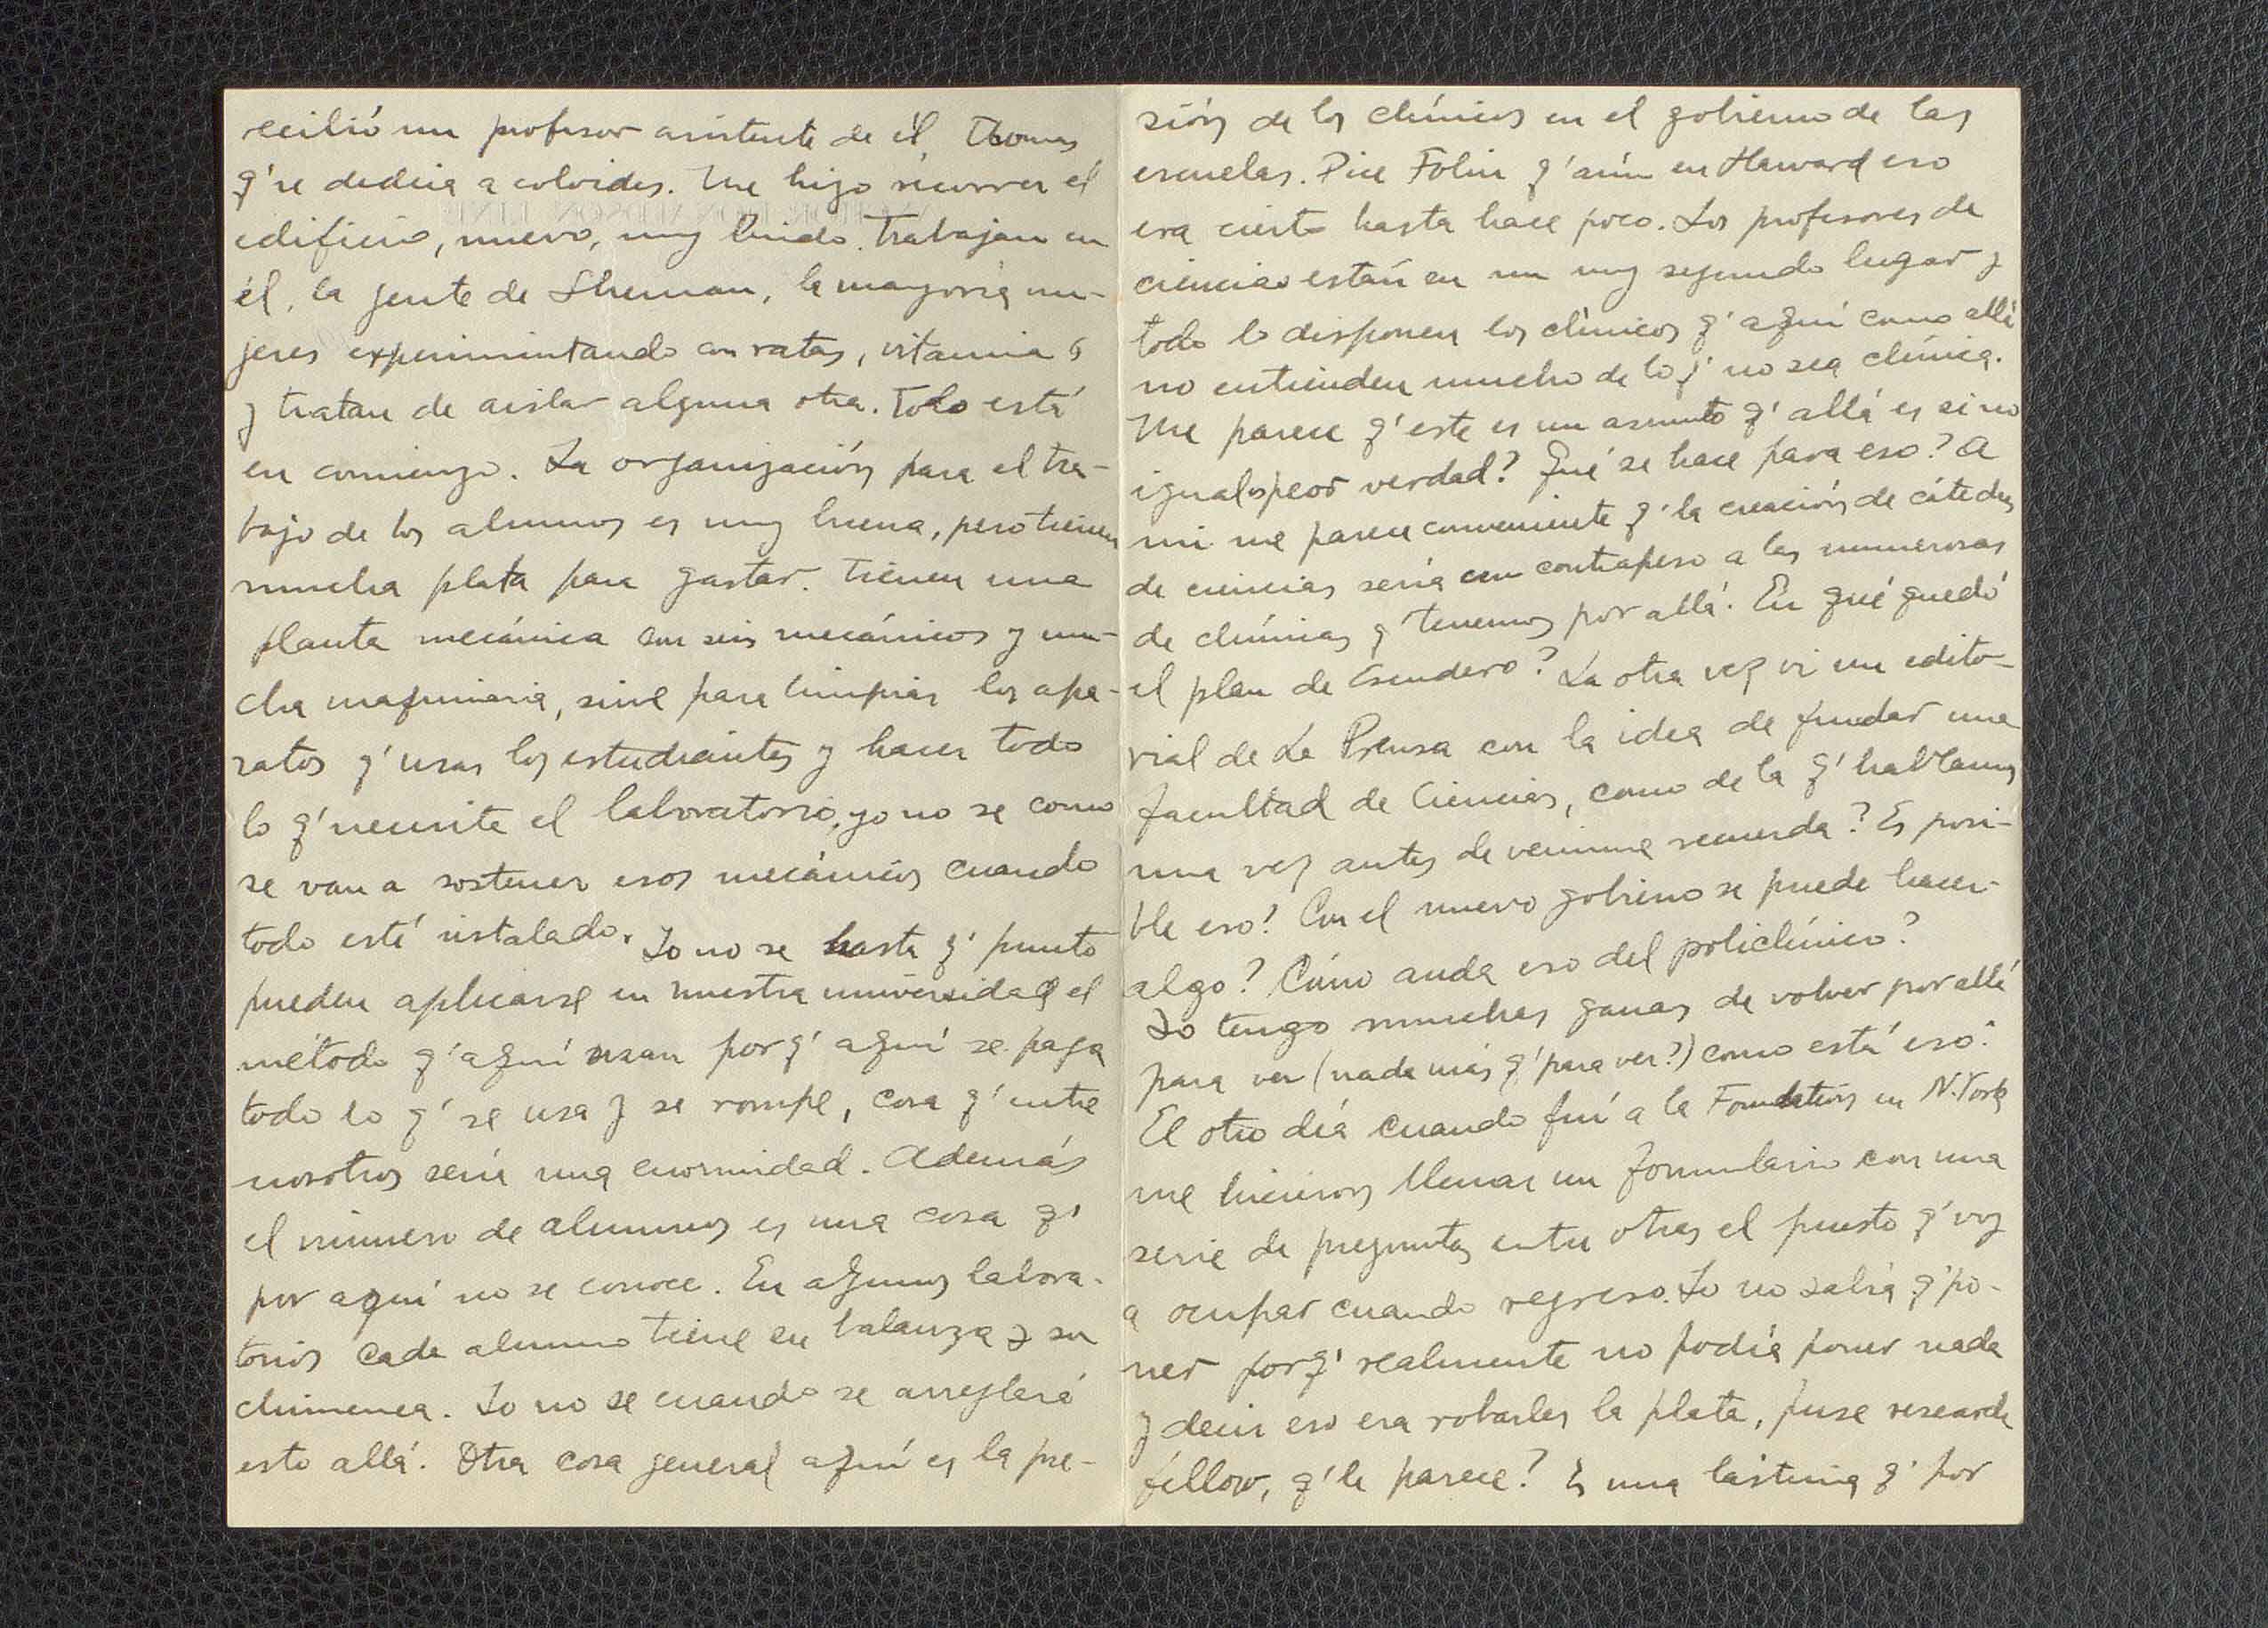 recibió un profesor asistente de él, Thomas
q' se dedica a coloides. Me hizo recorrer el
edificio, nuevo, muy lindo. Trabajan en
él, la gente de Sherman, la mayoría mu-
jeres experimentando con ratas, vitamina
y tratan de aislar alguna otra. Todo está
en comienzo. La organización para el tra-
bajo de los alumnos es muy buena, pero tienen
mucha plata para gastar. Tienen una
planta mecánica con seis mecánicos y mu-
cha maquinaria, sirve para limpiar los apa-
ratos q' usan los estudiantes y hacer todo
lo q' necesite el laboratorio, yo no se como
se van a sostener esos mecánicos cuando
todo esté instalado. Yo no se hasta q' punto
pueden aplicarse en nuestra universidad el
método q' aquí usan porq' aquí se paga
todo lo q' se usa y se rompe, cosa q' entre
nosotros sería una enormidad. Además
el número de alumnos es una cosa q'
por aquí no se conoce. En algunos labora-
torios cada alumno tiene su balanza y su
chimenea. Yo no se cuando se arreglará
esto allá. Otra cosa general aquí es la pre-
sión de los clínicos en el gobierno de las
escuelas. Dice Folin q' aún en Harvard eso
era cierto hasta hace poco. Los profesores de
ciencias están en un muy segundo lugar y
todo lo disponen los clínicos q' aquí como allá
no entienden mucho de lo q' no sea clínica.
Me parece q' este es un asunto q' allá es si no
igual, peor verdad? Qué se hace para eso? A
mi me parece conveniente q' la creación de cátedras
de ciencias sería un contrapeso a las numerosas
de clínicas q' tenemos por allá. En qué quedó
el plan de Escudero? La otra vez vi un edito-
rial de La Prensa con la idea de fundar una
facultad de Ciencias, como de la q' hablamos
una vez antes de venirme recuerda? Es posi-
ble eso? Con el nuevo gobierno se puede hacer
algo? Cómo anda eso del policlínico?
Yo tengo muchas ganas de volver por allá
para ver (nada más q' para ver?) como está eso.
El otro día cuando fuí a la Foundation en N. York
me hicieron llenar un formulario con una
serie de preguntas entre otras el puesto q' voy
a ocupar cuando regreso. Yo no sabía q' po-
ner porq' realmente no podía poner nada
y decir eso era robarles la plata, puse research
fellow, q' le parece? Es una lástima q' por